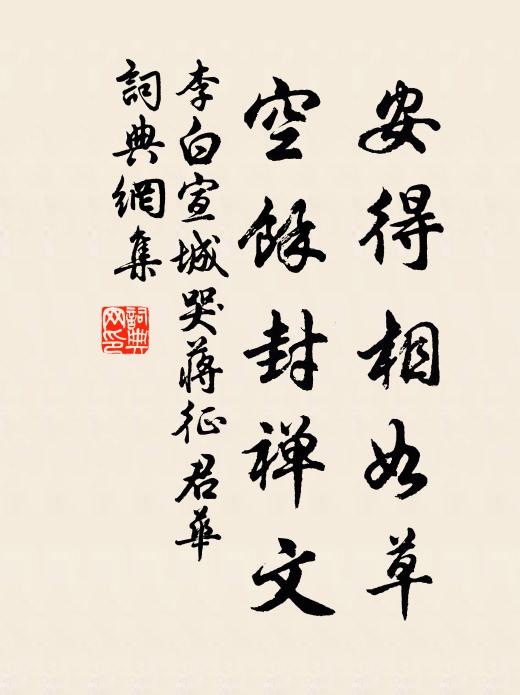 安得相如草
空餘封禪文
李白宣城哭蔣征君華
詞典網集
詞典網印